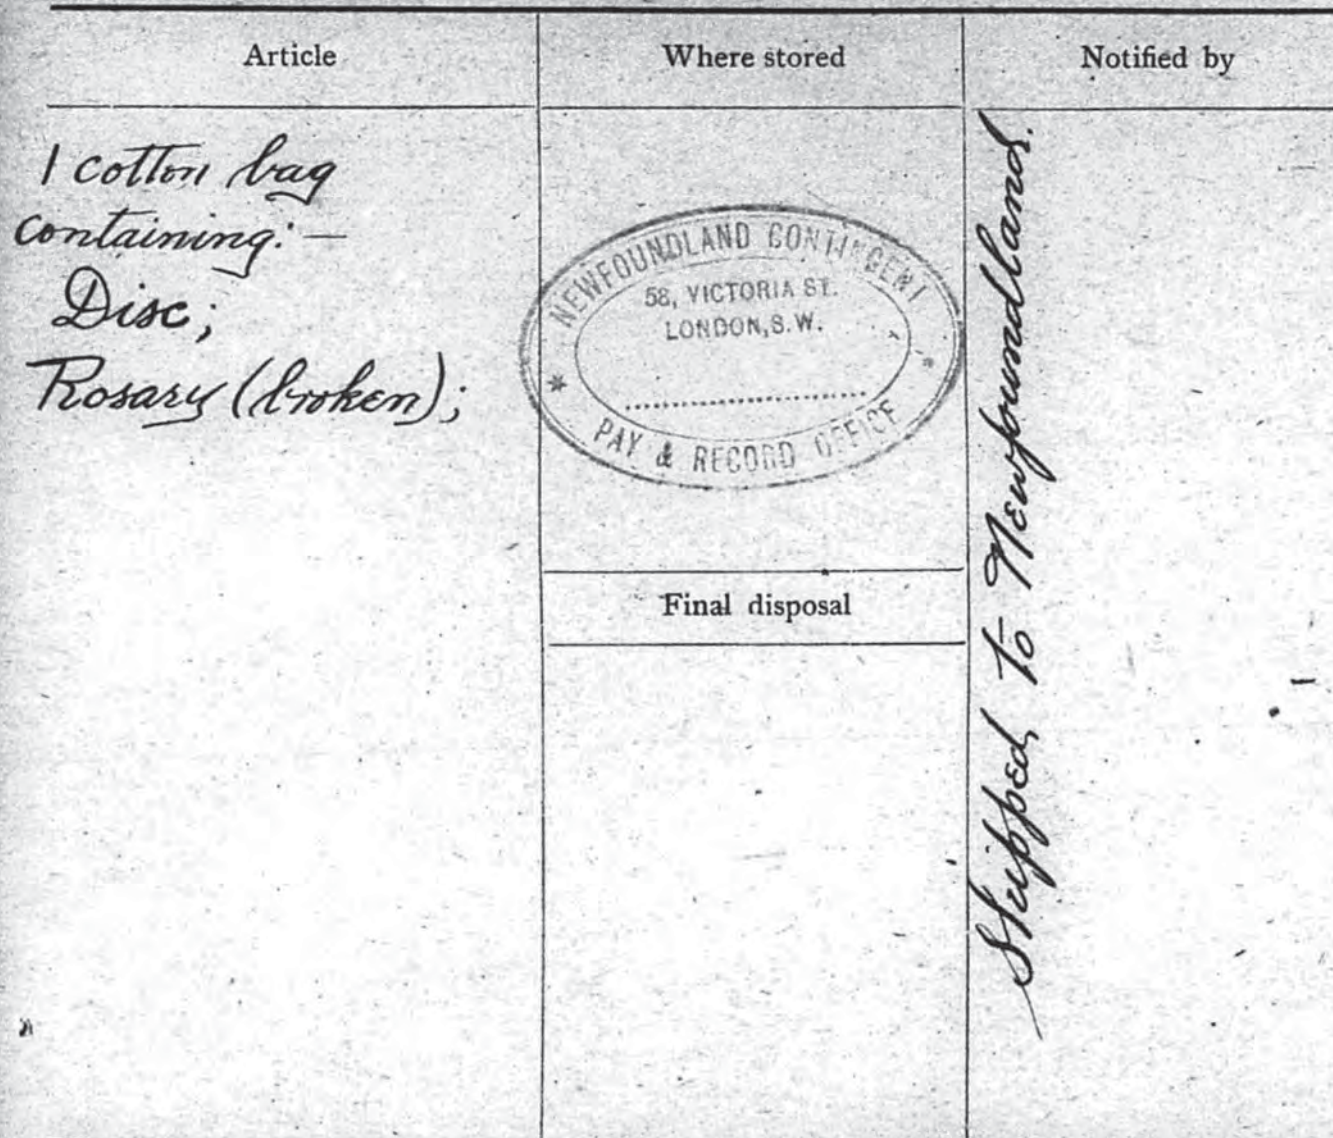 Article
Where stored
Notified by
1 cotton bag
containing:—
Disc;
Rosary (broken);
NEWFOUNDLAND CONTINGENT
58, VICTORIA ST.
LONDON, S.W.
PAY & RECORD OFFICE
Final disposal
Shipped to Newfoundland.